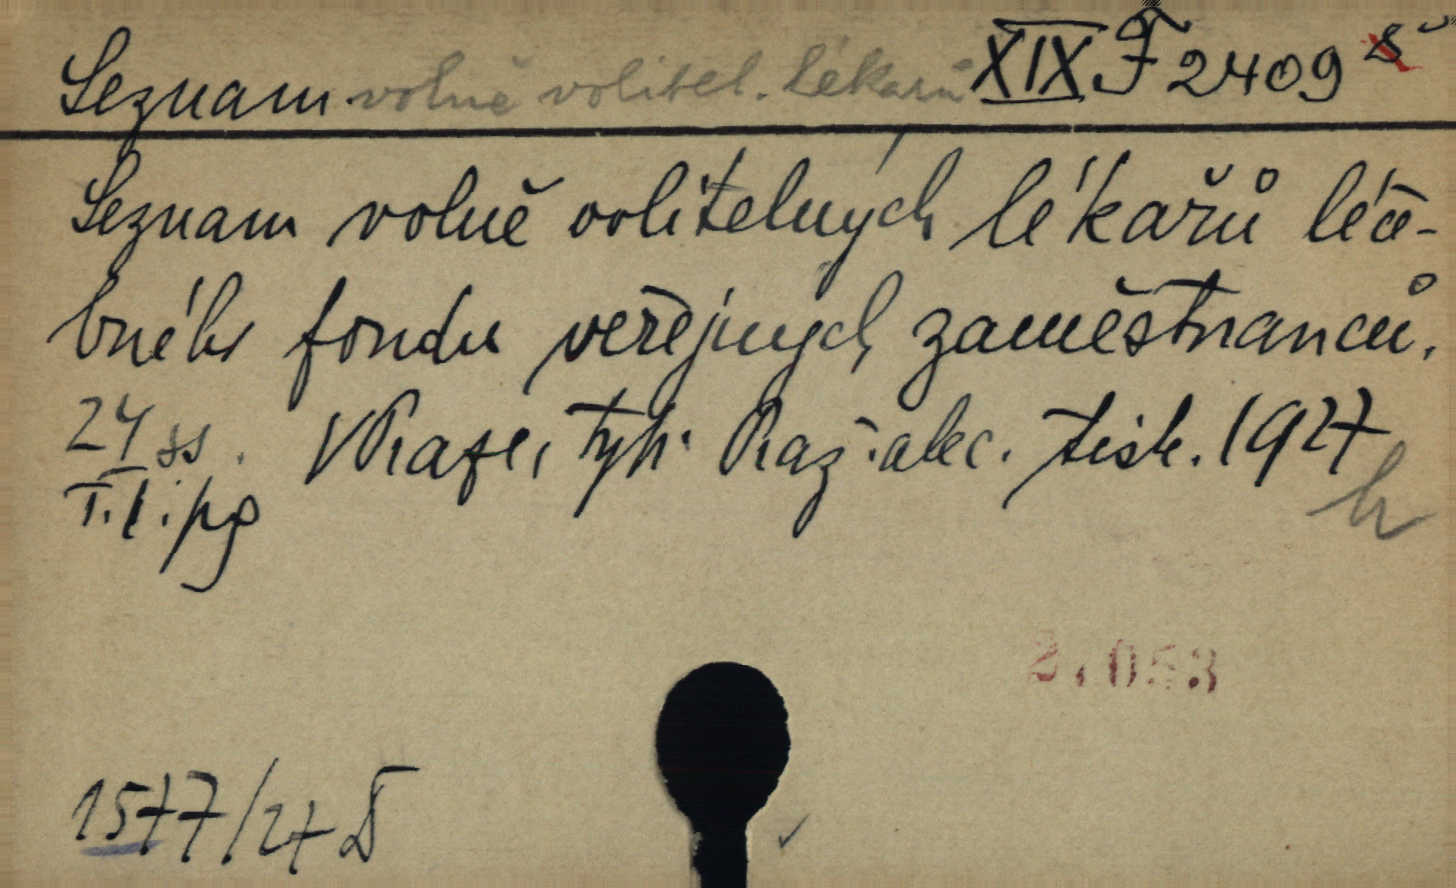 Seznam volně volitel. lékařů XIX F 2409
Seznam volně volitelných lékařů léče-
bného fondu veřejných zaměstnanců.
24 ss. V Praze, typ. Praž. akc. tisk. 1927
I. 1. pg
21053
1577/27 D